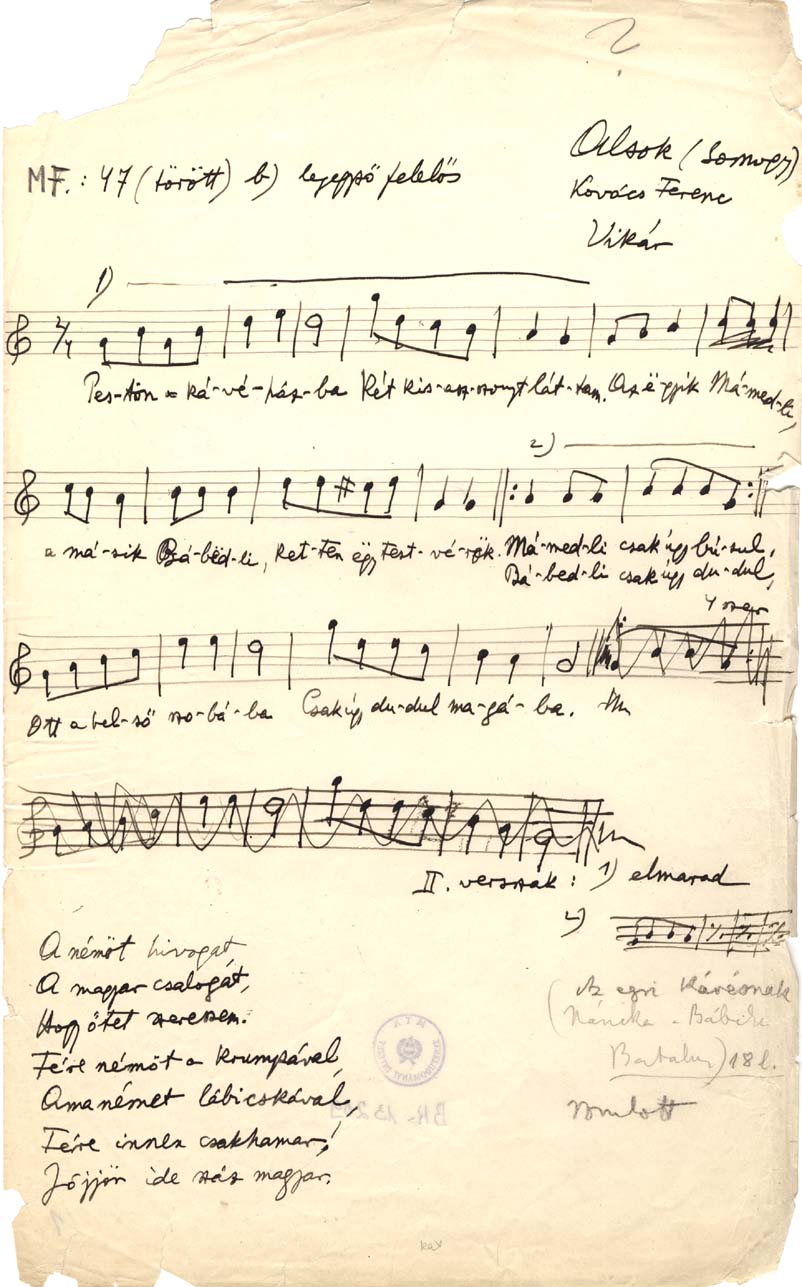 ?
MF.: 47 (törött) b) legeggső felelős
Alsok (Somogy)
Kovács Ferenc
Vikár
1)
2/4
Pes-tön a ká-vé-ház-ba Két kis-asz-szonyt lát-tam. Az ë-gyik Má-med-li,
2)
a má-sik Bá-bëd-li, ket-ten ëgy test-vé-rök. Má-med-li csak úgy bú-sul,
Bá-bed-li csak úgy du-dul,
4 szer
Ott a bel-ső szo-bá-ba Csak úgy du-dul ma-gá-ba.
II. versszak: 1) elmarad
2)
A némöt hivogat,
A magyar csalogát,
Hogy őtet szeressem.
Félre némöt a krumpával,
Ama német lábicskával,
Félre innen csakhamar!
Jöjjön ide száz magyar.
(Az egri kávésnak
Náncika - Bábika
Bartalus) 18 l.
BR. 13209